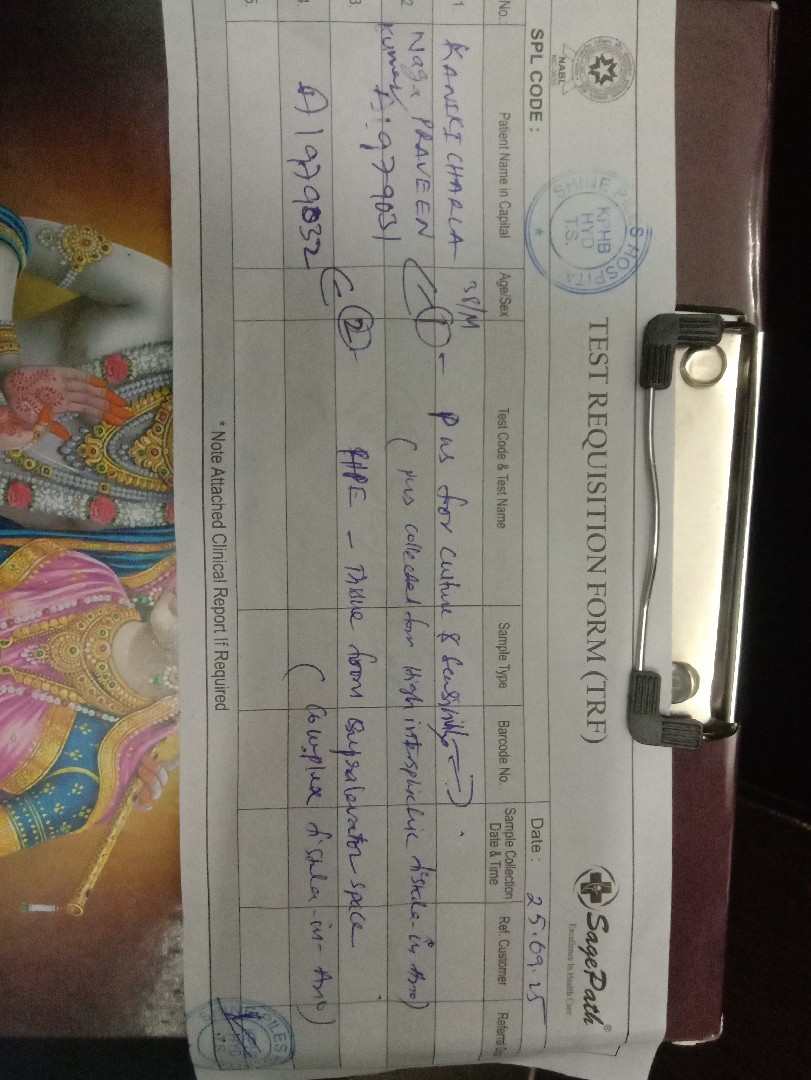 NABL
SHINE PILES HOSPITA
KPHB
HYD
T.S.
*
TEST REQUISITION FORM (TRF)
SagePath®
Excellence In Health Care
SPL CODE :
Date : 25.09.25
No. Patient Name in Capital Age/Sex Test Code & Test Name Sample Type Barcode No. Sample Collection Date & Time Ref. Customer Referral
1. KANIKICHARLA 38/M ① - Pus for culture & Sensitivity
2 Naga PRAVEEN (pus collected from High intersphinctric fistula-in Ano)
Kumar A1979031
3. ② - HPE - Tissue from Supralevator space
4. A1979032 (Complex fistula-in-Ano)
5.
* Note Attached Clinical Report If Required
PILES
HYD
T.S.